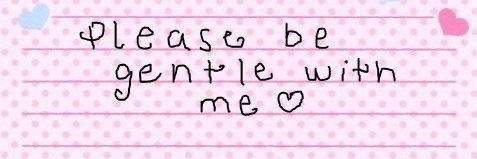 Please be
gentle with
me ♡